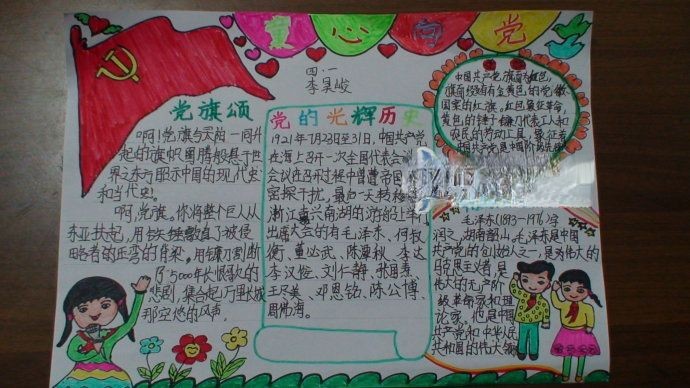 童心向党
四:一
李昊峻
党旗颂
啊!党旗与天的一同升
起的旗帜
界之东方昭示中国的现代史
和当代史!
啊,党旗。你将整个巨人从
东亚拱起,用
略者的
了5000年长
悲剧,集合起万里长城
那空
党的光辉历史
1921年7月23日至31日,中国共产党
在上海召开一次全国代表会议
会议在召开过程中曾遭帝国
密探干扰,最后一天转移
浙江嘉兴南湖的游船上举行
出席大会的有毛泽东、何叔
衡、董必武、陈潭秋、李达
李汉俊、刘仁静、张国焘、
王尽美、邓恩铭、陈公博、
周佛海。
中国共产党旗面为红色,
旗面缀有金黄色的党徽
国家的红旗。红色象征革命,
黄色的锤子镰刀代表工人和
农民的劳动工具,象征着
中国共产党是中国
毛泽东(1893-1976)字
润之,湖南韶山。毛泽东是中国
共产党的创始人之一,是为伟大的
马克思主义者,是
伟大的无产阶
级革命家和理
论家,他是中国
共产党和中华人民
共和国的伟大领